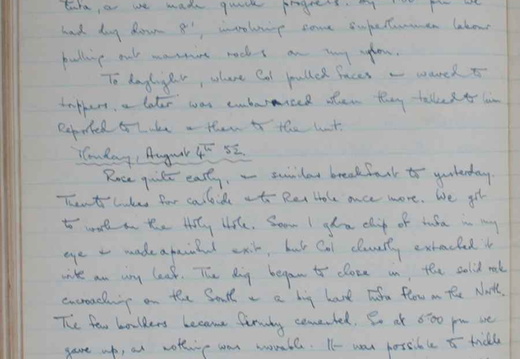 tufa, as we made quick progress. By 1.00 pm we
had dug down 8', involving some superhuman labour
pulling out massive rocks on my
To daylight, where Col pulled faces & waved to
trippers, & later was embarrassed when they talked to him
Reported to Luke & then to the hut.
Monday, August 4th 52.
Rose quite early, & similar breakfast to yesterday.
Then to Lukes for carbide & to Rea Hole once more. We got
to work on the Holy Hole. Soon I got a chip of tufa in my
eye & made a painful exit, but Col cleverly extracted it
with an ivy leaf. The dig began to close in, the solid rock
encroaching on the South & a big hard tufa flow on the North.
The few boulders became firmly cemented. So at 5.00 pm we
gave up, as nothing was movable. It was possible to trickle